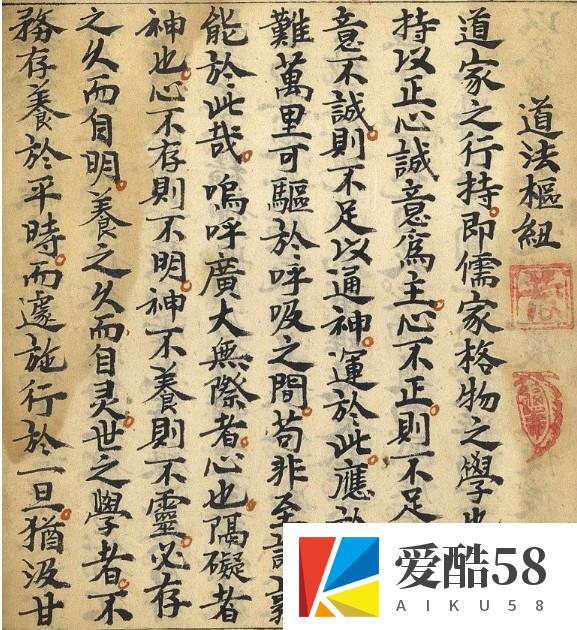 道法樞紐
道家之行持即儒家格物之學也
持以正心誠意爲主心不正則不足
意不誠則不足以通神運於此應
難萬里可驅於呼吸之間苟非至
能於此哉嗚呼廣大無際者心也隔礙者
神也心不存則不明神不養則不靈必存
之久而自明養之久而自灵世之學者不
務存養於平時而遽施行於一旦猶汲甘
爱酷58
AIKU58